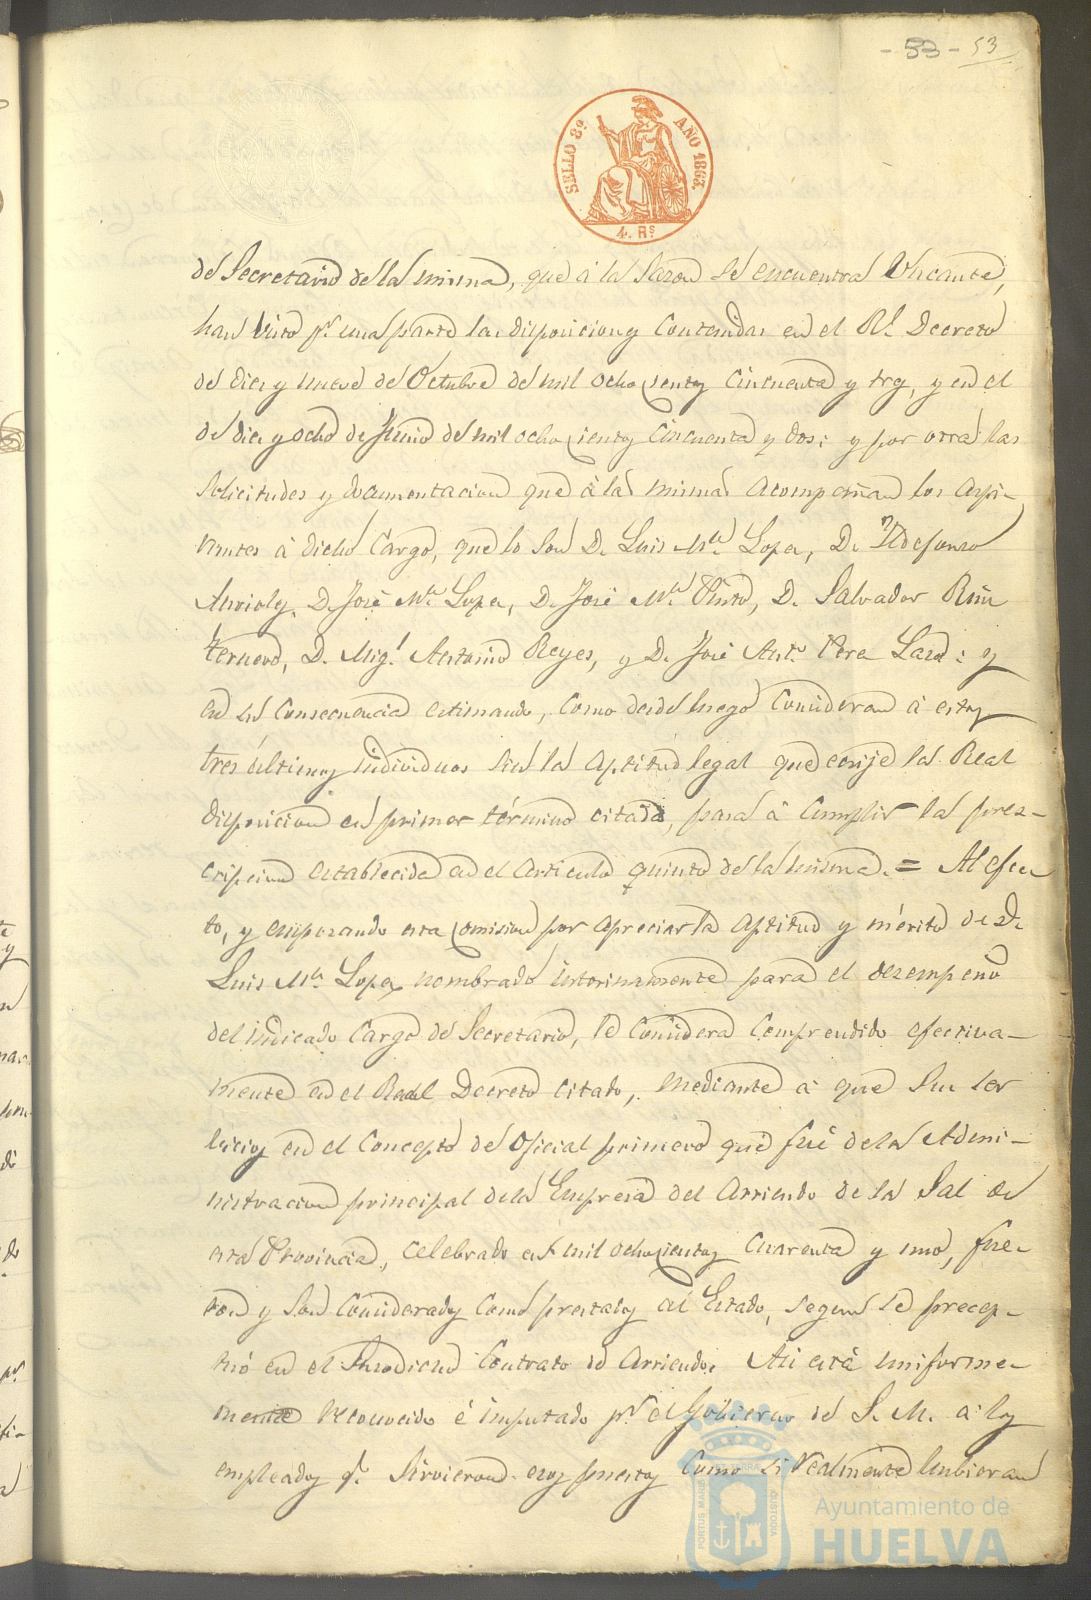 - 53 - 53
SELLO 8º AÑO 1863.
4. Rs
de Secretario de la misma, que á la Sazon se encuentra Vacante,
han visto pr. una parte las disposiciones contenidas en el Rl. Decreto
de diez y nueve de Octubre de mil ochocientos cincuenta y tres, y en el
de diez y ocho de Junio de mil ochocientos cincuenta y dos; y por otra las
Solicitudes y documentacion que á la misma acompañan los aspi-
rantes á dicho Cargo, que lo son D. Luis Ma. Lopez, D. Yldefonso
D. José Ma. Lopez, D. José Ma. Pinto, D. Salvador
D. Migl. Antonio Reyes, y D. José Anto. Vera Lazo: y
en su consecuencia estimando, como desde luego consideran á estos
tres últimos individuos sin la aptitud legal que exije la Real
disposicion en primer término citada, para á cumplir la pres-
cripcion establecida en el articulo quinto de la misma. = Al efec-
to, y empezando esta Comision por apreciar la aptitud y mérito de D.
Luis Ma. Lopez nombrado interinamente para el desempeño
del indicado Cargo de Secretario, le considera comprendido efectiva-
mente en el Real Decreto citado, mediante á que sus ser
vicios en el concepto de Oficial primero que fué de la Admi-
nistracion principal de la Empresa del Arriendo de la Sal de
esta Provincia, celebrado en mil ochocientos cuarenta y uno, fue-
ron y son considerados como prestados al Estado, segun se precep-
tuó en el Contrato de Arriendo. Asi está uniforme-
mente reconocido é imputado pr. el Gobierno de S. M. á los
empleados q. sirvieron esos puestos como si realmente hubieran
PORTUS MARIS ET TERRÆ CUSTODIA
Ayuntamiento de
HUELVA